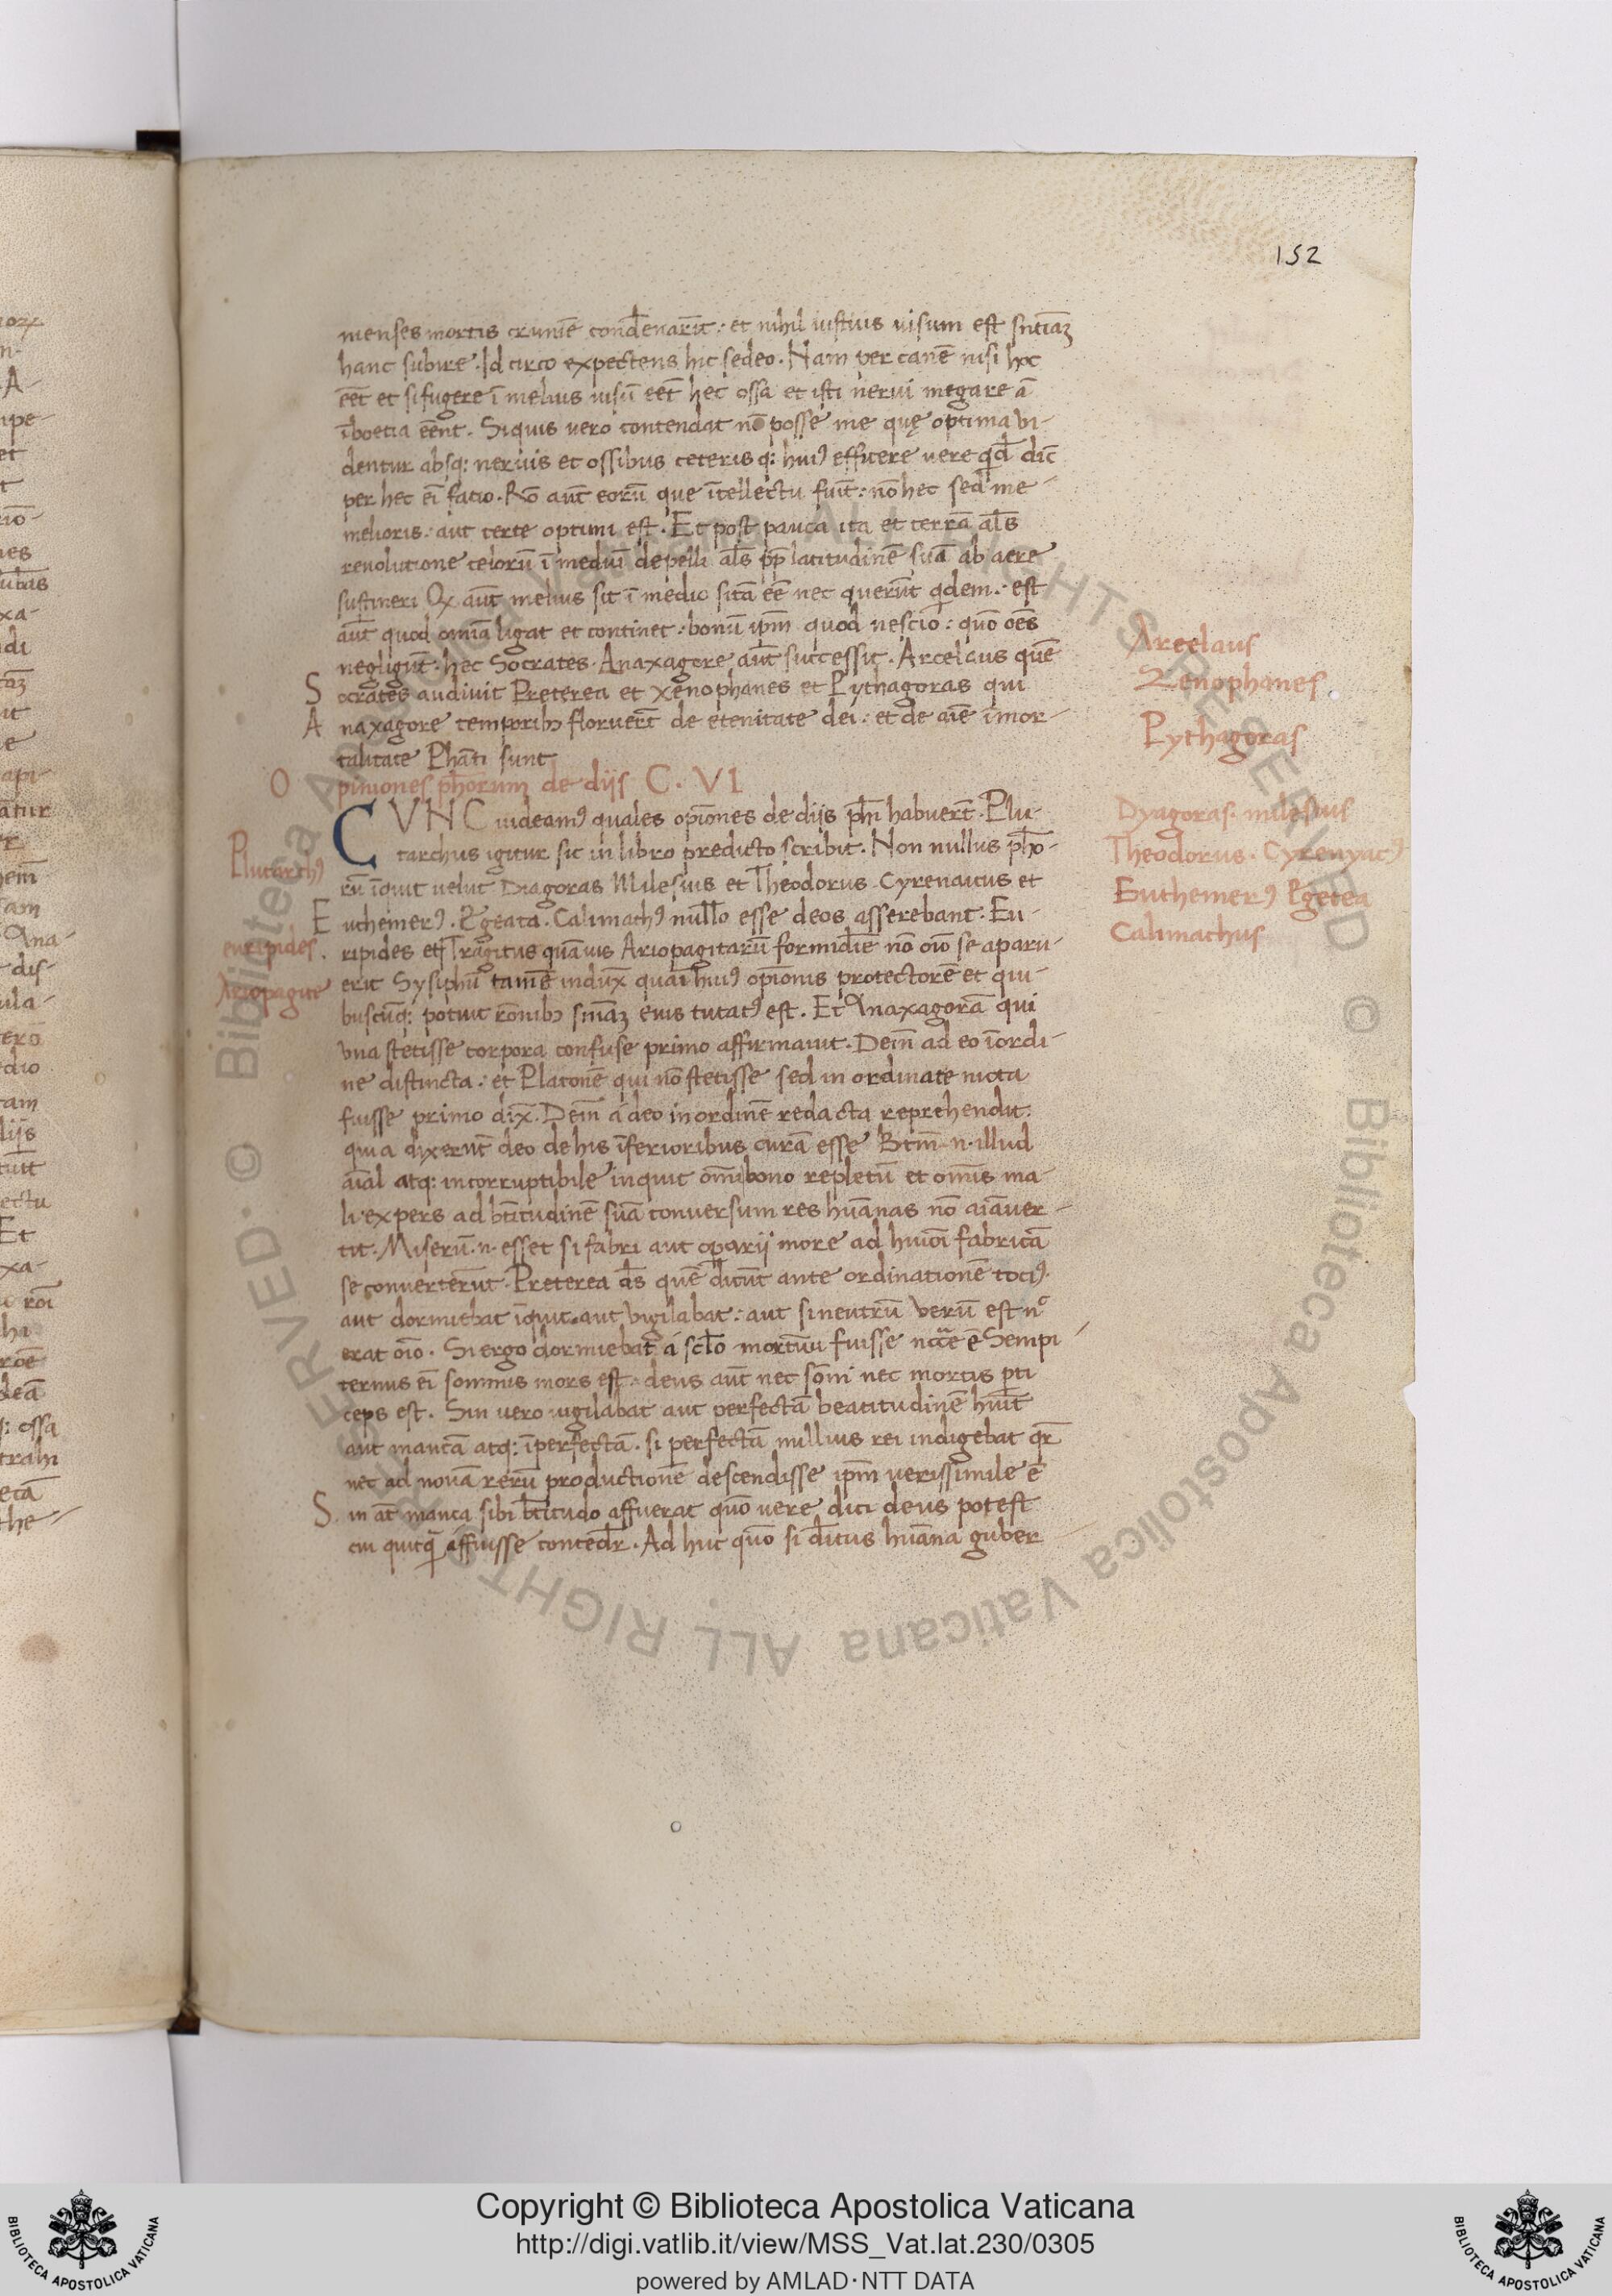 152
menses mortis crimīe condēnarīt: et nihil iustius uisum est sn̄tiaꝫ
hanc subire. Id circo expectens hic sedeo. Nam per canē nisi hoc
eēt et si fugere ī melius uisū eēt hec ossa et isti nerui megare ā
ī boetia eēnt. Si quis uero contendat nō posse me quę optima vi-
dentur absq: neruis et ossibus ceteris q: huiꝰ efficere uere qd dīc
per hec eī facio. Rō aūt eorū que ītellectu fuīt: nō hec sed me-
melioris: aut certe optimi est. Et post pauca ita et terrā al̄s
reuolutione celorū ī mediū depelli al̄s pp̄ latitudinē suā ab aere
sustineri Qꝫ aūt melius sit ī medio sitā eē nec querūt qdem: est
aūt quod omīa ligat et continet: bonū ip̄m quod nescio: quō oēs
negligūt: hec Socrates. Anaxagore aūt successit. Arcelaus quē
Socrates audiuit Preterea et xenophanes et Pythagoras qui
Anaxagore temporibꝫ floruerūt de eternitate dei: et de aīe īmor-
talitate Phāti sunt
Opiniones ph̄orum de diis C. VI
CVNC uideamꝰ quales opīones de diis ph̄i habuerūt. Plu-
tarchus igitur sic in libro predicto scribit. Non nullus ph̄o-
rū īquit uelut Diagoras Milesius et Theodorus Cyrenaicus et
Euthemerꝰ. Egeata. Calimachꝰ null̄o esse deos asserebant. Eu-
ripides et Tragicus quāuis Ariopagitarū formidīe nō oīo se aparu-
erit Sysiphū tamē indux̄ quāi huiꝰ opīonis protectorē et qui-
buscūq: potuit rōnibꝫ sn̄iaꝫ eius tutatꝰ est. Et Anaxagorā qui
vna stetisse corpora confuse primo affirmauit. Deīn ad eo ī ordi-
ne distincta: et Platonē qui nō stetisse sed in ordinate mota
fuisse primo dix̄. Deīn a deo in ordinē redacta reprehendit:
quia dixerūt deo de his īferioribus curā esse Btm̄ n. illud
aīal atq: incorruptibile inquit om̄i bono repletū et om̄is ma-
li expers ad btītudinē suā conuersum res huānas nō aīauer-
tit. Miserū n. esset si fabri aut operarii more ad huiōi fabricā
se conuerterūt. Preterea d̄s quē dicūt ante ordinationē tociꝰ
aut dormiebat īquit aut vigilabat: aut si neutrū verū est nō
erat oīo. Si ergo dormiebat a scl̄o mortuū fuisse nc̄ce ē Sempi
ternus eī somnus mors est: deus aūt nec sōni nec mortis pti
ceps est. Sin uero uigilabat aut perfectā beatitudinē huīt
aut mancā atq: īperfectā. si perfectā nullius rei indigebat qr̄
nec ad nouā rerū productionē descendisse ip̄m uerissimile ē
Sin āt manca sibi btītudo affuerat quō uere dici deus potest
cui quicq̄ affuisse conced̄r. Ad huc quō si d̄icus huāna guber
Arcelaus
Zenophanes
Pythagoras
Dyagoras. milesius
Theodorus. Cyrenyacꝰ
Euthemerꝰ Egetea
Calimachus
Plutarchꝰ
euripides.
Ariopagite
Copyright © Biblioteca Apostolica Vaticana
http://digi.vatlib.it/view/MSS_Vat.lat.230/0305
powered by AMLAD·NTT DATA
BIBLIOTECA APOSTOLICA VATICANA
BIBLIOTECA APOSTOLICA VATICANA
© Biblioteca Apostolica Vaticana ALL RIGHTS RESERVED